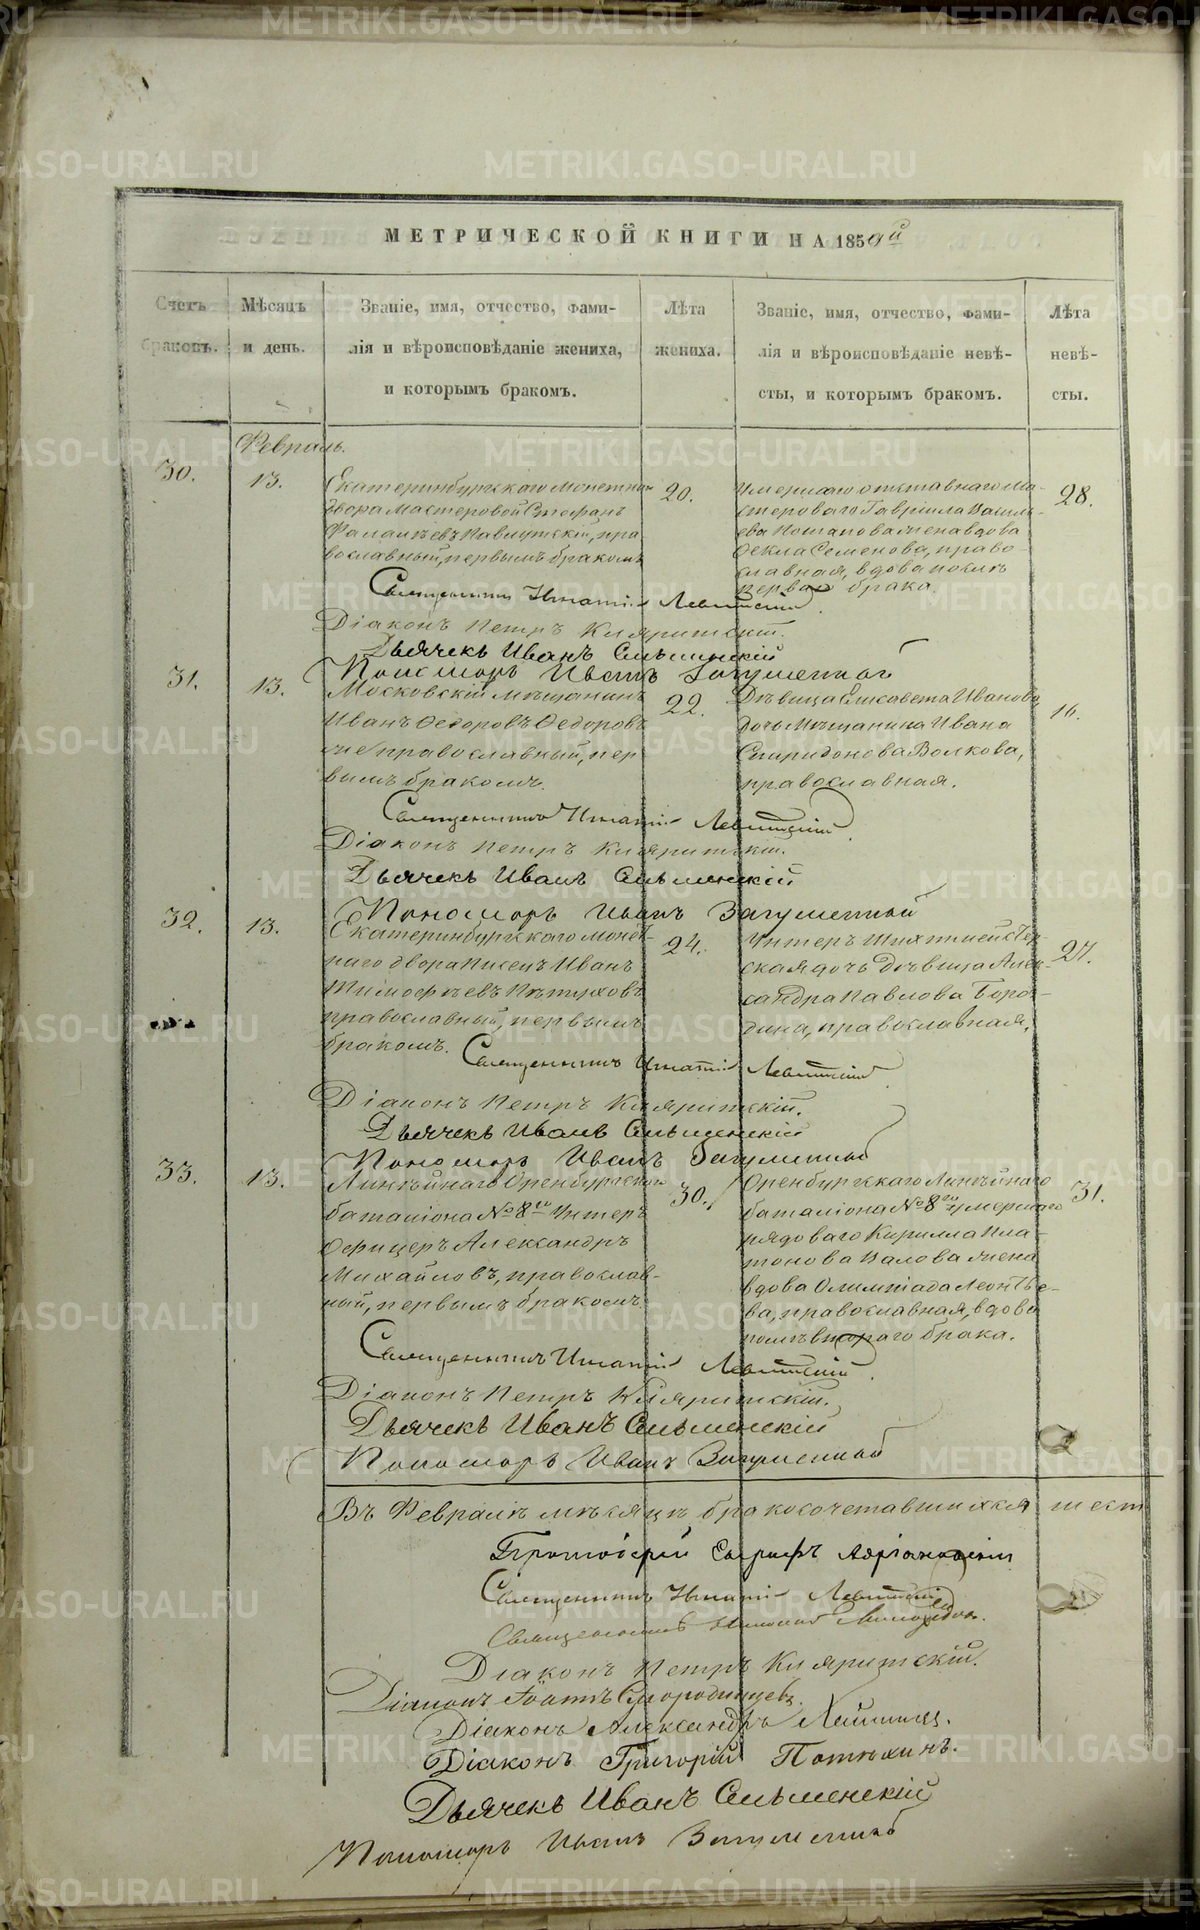 МЕТРИЧЕСКОЙ КНИГИ НА 1859й
Счетъ браковъ.
Мѣсяцъ и день.
Званіе, имя, отчество, фами-
лія и вѣроисповѣданіе жениха,
и которымъ бракомъ.
Лѣта
жениха.
Званіе, имя, отчество, фами-
лія и вѣроисповѣданіе невѣ-
сты, и которымъ бракомъ.
Лѣта
невѣ-
сты.
Февраль.
30.
13.
Екатеринбургскаго Монетна
двора Мастеровой Стефанъ
православный, первымъ бракомъ
20.
Умершаго отставнаго Ма-
стероваго Гавріила Василь-
ева Потапова жена вдова
Фекла Семенова, право-
славная, вдова послѣ
перваго брака.
28.
Священникъ Игнатій Левитскій
Діаконъ Петръ
Дьячекъ Иванъ Сельменскій
Пономарь Иванъ Загуменной
31.
13.
Московскій мѣщанинъ
Иванъ Федоровъ Федоровъ
же православный, пер
вымъ бракомъ.
22.
Дѣвица Елисавета Иванова
дочь Мѣщанина Ивана
Спиридонова Волкова,
православная.
16.
Священникъ Игнатій Левитскій
Діаконъ Петръ
Дьячекъ Иванъ Сельменскій
Пономарь Иванъ Загуменной
32.
13.
Екатеринбургскаго Монет-
наго двора Писецъ Иванъ
Тимофѣевъ Пѣтуховъ
православный, первымъ
бракомъ.
24.
Унтеръ Шихтмейстер
ская дочь Дѣвица Алек-
сандра Павлова Боро-
дина, православная,
27.
Священникъ Игнатій Левитскій
Діаконъ Петръ
Дьячекъ Иванъ Сельменскій
Пономарь Иванъ Загуменной
33.
13.
Линѣйнаго Оренбургскаго
баталіона № 8го Унтеръ
Офицеръ Александръ
Михайловъ, православ-
ный, первымъ бракомъ
30.
Оренбургскаго Линѣйнаго
баталіона № 8го умершаго
рядоваго Кирилла Пла-
тонова Валова жена
вдова Олимпіада Леонтье-
ва, православная, вдова
послѣ втораго брака.
31.
Священникъ Игнатій Левитскій
Діаконъ Петръ
Дьячекъ Иванъ Сельменскій
Пономарь Иванъ Загуменной
Въ Февралѣ мѣсяцѣ бракосочетавшихся шест
Протоіерей
Священникъ Игнатій Левитскій
Священникъ
Діаконъ Петръ
Діаконъ Іоаннъ Смородинцевъ.
Діаконъ Александръ
Діаконъ Григорій Потѣхинъ.
Дьячекъ Иванъ Сельменскій
Пономарь Иванъ Загуменной
METRIKI.GASO-URAL.RU